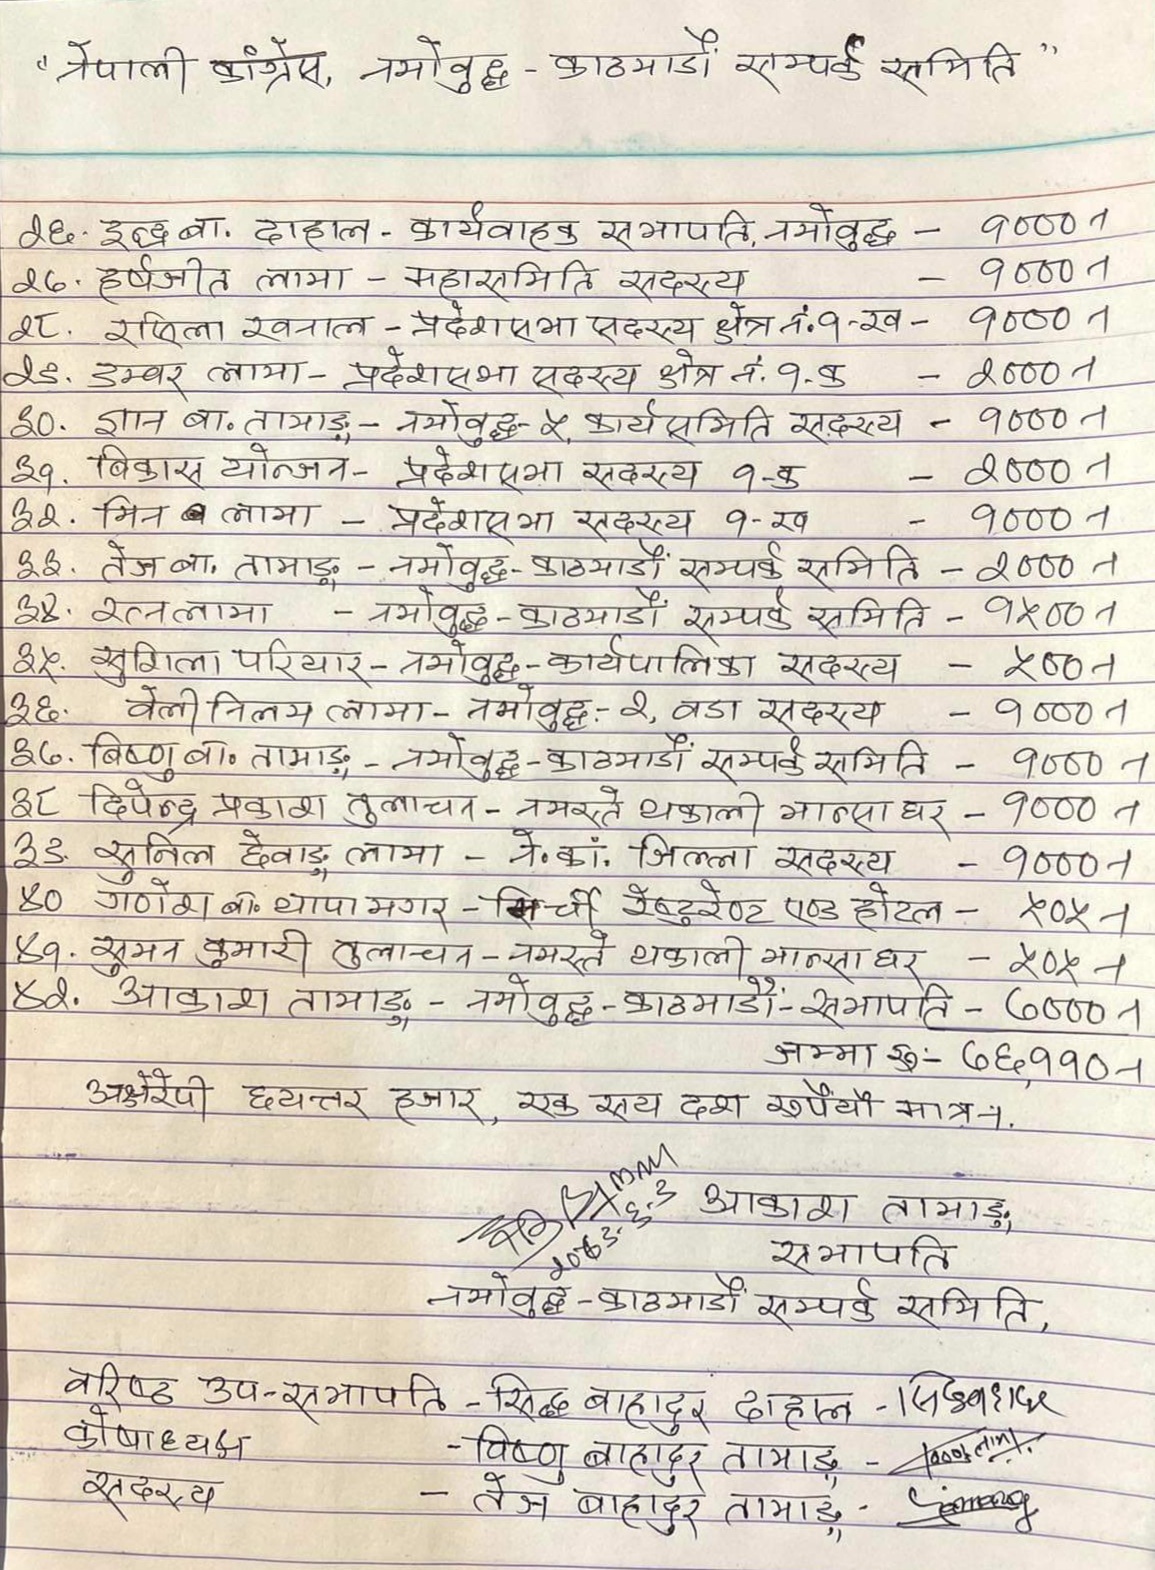 "नेपाली कांग्रेस, नमोवुद्ध - काठमाडौं सम्पर्क समिति"
२६. इन्द्र बा. दाहाल - कार्यवाहक सभापति, नमोवुद्ध - १०००।-
२७. हर्षजीत लामा - महासमिति सदस्य - १०००।-
२८. रमिला खनाल - प्रदेशसभा सदस्य क्षेत्र नं. १-ख - १०००।-
२९. डम्वर लामा - प्रदेशसभा सदस्य क्षेत्र नं. १-क - २०००।-
३०. ज्ञान बा. तामाङ्ग - नमोवुद्ध-५, कार्यसमिति सदस्य - १०००।-
३१. बिकास योन्जन - प्रदेशसभा सदस्य १-क - २०००।-
३२. मित्र लामा - प्रदेशसभा सदस्य १-ख - १०००।-
३३. तेज बा. तामाङ्ग - नमोवुद्ध-काठमाडौं सम्पर्क समिति - २०००।-
३४. रत्न लामा - नमोवुद्ध-काठमाडौं सम्पर्क समिति - १५००।-
३५. सुशिला परियार - नमोवुद्ध-कार्यपालिका सदस्य - ५००।-
३६. वेली निलम लामा - नमोवुद्ध-२, वडा सदस्य - १०००।-
३७. बिष्णु बा. तामाङ्ग - नमोवुद्ध-काठमाडौं सम्पर्क समिति - १०००।-
३८ दिपेन्द्र प्रकाश तुलाचन - नमस्ते थकाली भान्साघर - १०००।-
३९. सुनिल देवाङ्ग लामा - ने.कां. जिल्ला सदस्य - १०००।-
४० गणेश बा. थापामगर - मिर्ची रेष्टुरेण्ट एण्ड होटल - ५०५।-
४१. सुमन कुमारी तुलाचन - नमस्ते थकाली भान्साघर - ५०५।-
४२. आकाश तामाङ्ग - नमोवुद्ध-काठमाडौं-सभापति - ७०००।-
जम्मा रु:- ७६,११०।-
अक्षेरेपी छयत्तर हजार, एक सय दश रुपैयाँ मात्र।-.
२०८३-६-३
आकाश तामाङ्ग
सभापति
नमोवुद्ध-काठमाडौं सम्पर्क समिति,
वरिष्ठ उप-सभापति - सिद्ध बाहादुर दाहाल - सिद्धबहादुर
कोषाध्यक्ष - विष्णु बाहादुर तामाङ्ग -
सदस्य - तेज बाहादुर तामाङ्ग -